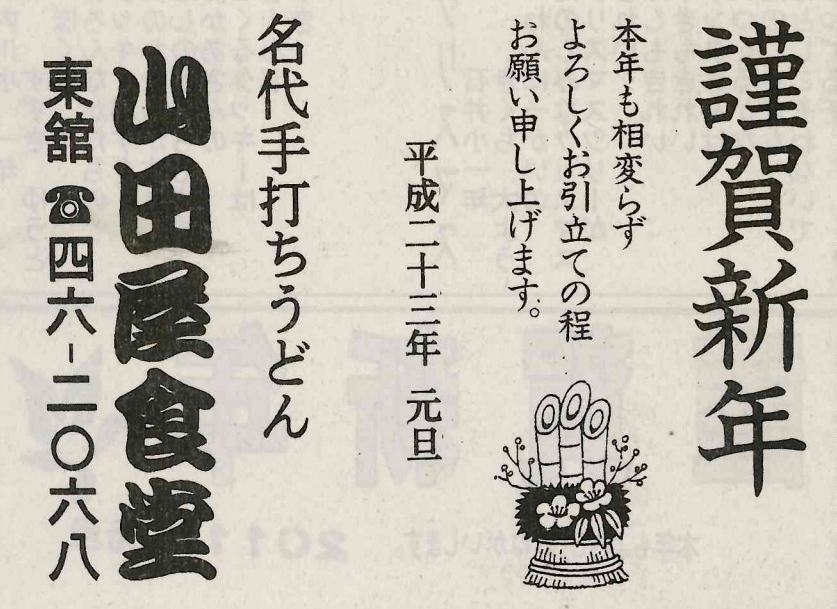 謹賀新年
本年も相変らず
よろしくお引立ての程
お願い申し上げます。
平成二十三年 元旦
名代手打ちうどん
山田屋食堂
東舘 ☎四六-二〇六八